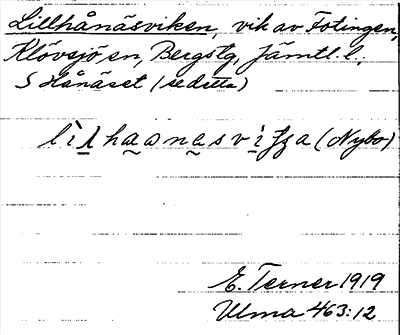 Lillhånäsviken, vik av Fotingen,
Klövsjö sn, Bergs tg, Jämtl. l.;
S Hånäset (se detta)
(Nybo)
E. Terner 1919
Ulma 463:12